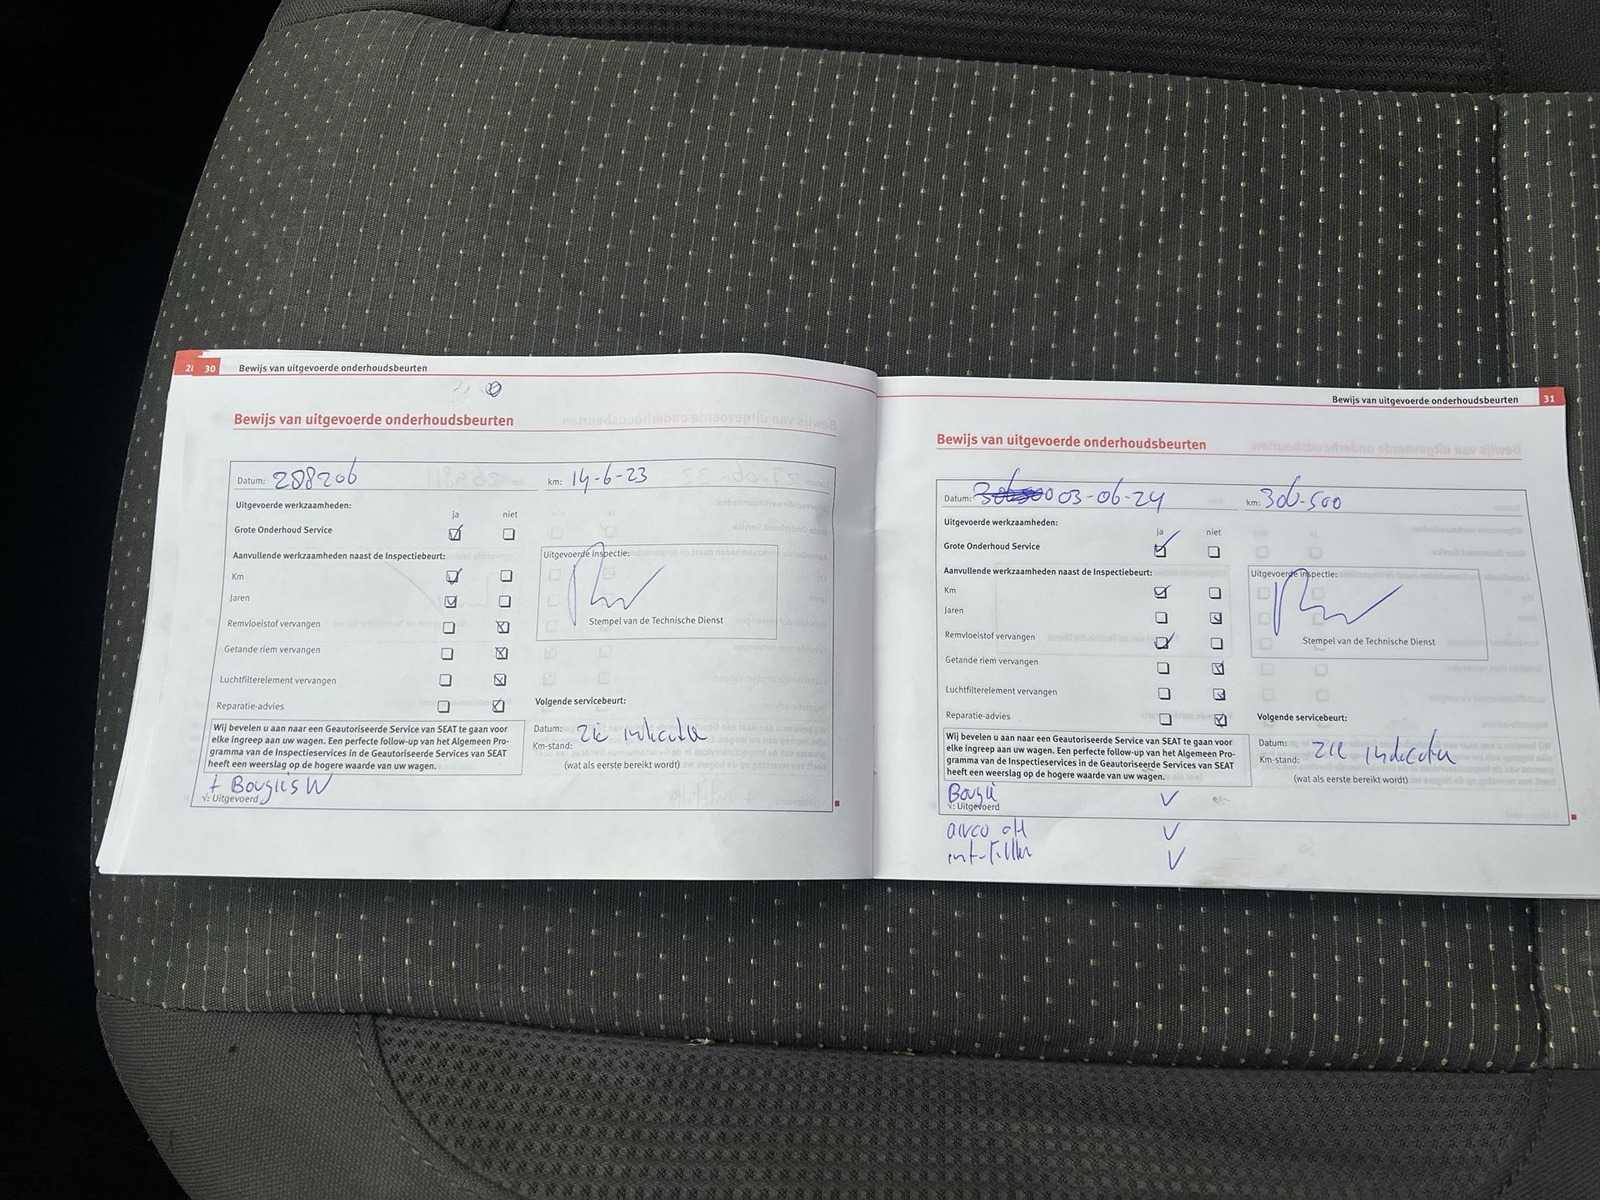 2 30 Bewijs van uitgevoerde onderhoudsbeurten
Bewijs van uitgevoerde onderhoudsbeurten
Datum: 288206 km: 14-6-23
Uitgevoerde werkzaamheden:
ja niet
Grote Onderhoud Service
Aanvullende werkzaamheden naast de Inspectiebeurt:
Uitgevoerde Inspectie:
Km
Jaren
Remvloeistof vervangen
Stempel van de Technische Dienst
Getande riem vervangen
Luchtfilterelement vervangen
Reparatie-advies
Volgende servicebeurt:
Wij bevelen u aan naar een Geautoriseerde Service van SEAT te gaan voor
elke ingreep aan uw wagen. Een perfecte follow-up van het Algemeen Pro-
gramma van de Inspectieservices in de Geautoriseerde Services van SEAT
heeft een weerslag op de hogere waarde van uw wagen.
Datum: zie indicator
Km-stand:
(wat als eerste bereikt wordt)
+ Bougies W
√: Uitgevoerd
Bewijs van uitgevoerde onderhoudsbeurten 31
Bewijs van uitgevoerde onderhoudsbeurten
Datum: 03-06-24 km: 306-500
Uitgevoerde werkzaamheden:
ja niet
Grote Onderhoud Service
Aanvullende werkzaamheden naast de Inspectiebeurt:
Uitgevoerde Inspectie:
Km
Jaren
Remvloeistof vervangen
Stempel van de Technische Dienst
Getande riem vervangen
Luchtfilterelement vervangen
Reparatie-advies
Volgende servicebeurt:
Wij bevelen u aan naar een Geautoriseerde Service van SEAT te gaan voor
elke ingreep aan uw wagen. Een perfecte follow-up van het Algemeen Pro-
gramma van de Inspectieservices in de Geautoriseerde Services van SEAT
heeft een weerslag op de hogere waarde van uw wagen.
Datum: zie indicator
Km-stand:
(wat als eerste bereikt wordt)
Bougie √
√: Uitgevoerd
airco √
int-filter √